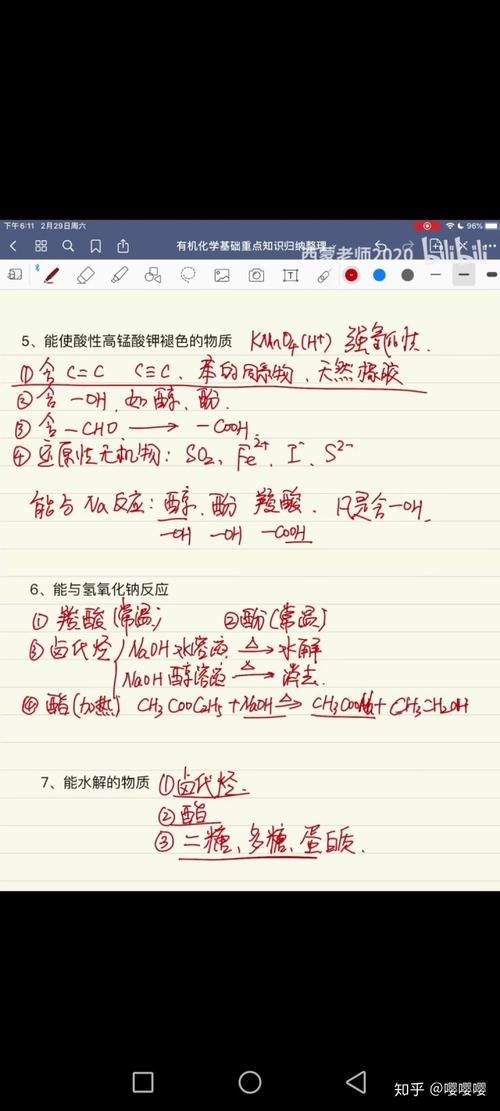 下午6:11 2月29日周六 96%
有机化学基础重点知识归纳整理
西蒙老师2020 bilibili
5、能使酸性高锰酸钾褪色的物质 KMnO₄(H⁺) 强氧化性.
①含 C=C C≡C、苯的同系物、天然橡胶
②含 -OH, 如醇、酚.
③含-CHO. → -COOH.
④还原性无机物: SO₂, Fe²⁺, I⁻, S²⁻
能与Na反应: 醇、酚 羧酸. 只是含-OH.
-OH -OH -COOH
6、能与氢氧化钠反应
①羧酸(常温) ②酚(常温)
③卤代烃 NaOH水溶液 △→ 水解
NaOH醇溶液 △→ 消去.
④酯(加热) CH₃COOC₂H₅+NaOH △→ CH₃COONa+CH₃CH₂OH
7、能水解的物质 ①卤代烃.
②酯
③二糖、多糖、蛋白质.
知乎 @嘤嘤嘤